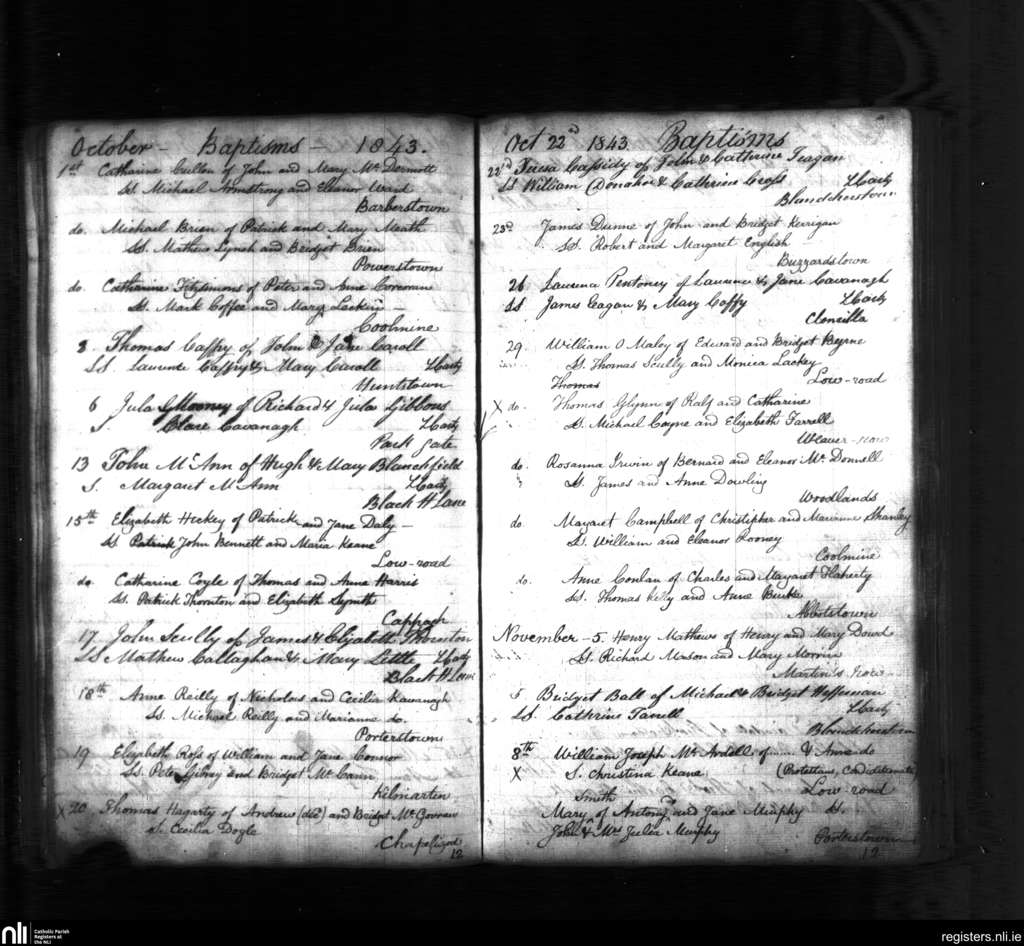 October - Baptisms - 1843.
1st Catharine Cullen of John and Mary McDermott
Ss Michael Armstrong and Eleanor Ward
Barberstown
do. Michael Brien of Patrick and Mary Meath
SS. Mathew Lynch and Bridget Brien
Powerstown
do Catharine Fitzsimons of Peter and Anne Corcoran
Ss. Mark Coffee and Mary Larkin
Coolmine
3. Thomas Caffry of John & Jane Caroll
SS. Laurence Caffry & Mary Caroll
Huntstown
6 Jula Mooney of Richard & Jula Gibbons
S. Clare Cavanagh
Park gate
13 John McAnn of Hugh & Mary Blanchfield
S. Margaret McAnn
Black H Lane
15th Elizabeth Hickey of Patrick and Jane Daly -
SS Patrick John Bennett and Maria Keane
Low-road
do. Catharine Coyle of Thomas and Anne Harris
Ss. Patrick Thornton and Elizabeth Smyth
Cappagh
17. John Scully of James & Elizabeth Thornton
SS Mathew Callaghan & Mary Little
Black H Lane
18th Anne Reilly of Nicholas and Cecilia Kavanagh
Ss. Michael Reilly and Marianne do.
Porterstown
19 Elizabeth Ross of William and Jane Connor
Ss. Peter Gibney and Bridget McCann
Kilmartin
X 20 Thomas Hagarty of Andrew and Bridget McGovran
S. Cecilia Doyle
Chapelizod
12
Oct 22d 1843 Baptisms
22nd Teresa Cassidy of John & Catherine Teagan
SS William Donahoe & Catherine Cross
Blanchardstown
23d James Dunne of John and Bridget Kerrigan
SS. Robert and Margaret English
Buzzardstown
26 Laurence Pentoney of Laurence & Jane Cavanagh
SS James Eagan & Mary Caffy
Clonsilla
29. William O Maley of Edward and Bridget Byrne
Ss. Thomas Scully and Monica Lackey
Low-road
Thomas
X do. Thomas Glynn of Ralf and Catharine
Ss. Michael Coyne and Elizabeth Farrell
Weaver-row
do. Rosanna Irwin of Bernard and Eleanor McDonnell
Ss. James and Anne Dowling
Woodlands
do. Margaret Campbell of Christipher and Marianne Shanley
Ss. William and Eleanor Rooney
Coolmine
do. Anne Conlan of Charles and Margaret Flaherty
SS. Thomas Kelly and Anne Burke
Abbotstown
November - 5. Henry Mathews of Henry and Mary Dowd
Ss. Richard Mason and Mary Morrin
Martin's row
5 Bridget Ball of Michael & Bridget Heffernan
SS. Cathrine Farrell
Blanchardstown
8th William Joseph McArdell of ...... & Anne do
X S. Christina Keane (Protestans, Conditionate)
Smith Low-road
Mary of Antony and Jane Murphy Ss.
John & Mrs Julia Murphy
Porterstown
12
nli
Catholic Parish
Registers at
the NLI
registers.nli.ie